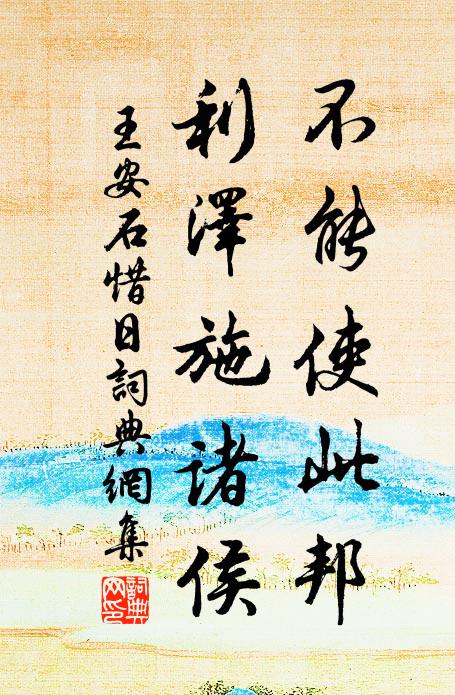 不能使此邦
利澤施諸侯
王安石惜日詞典網集
詞典
网印